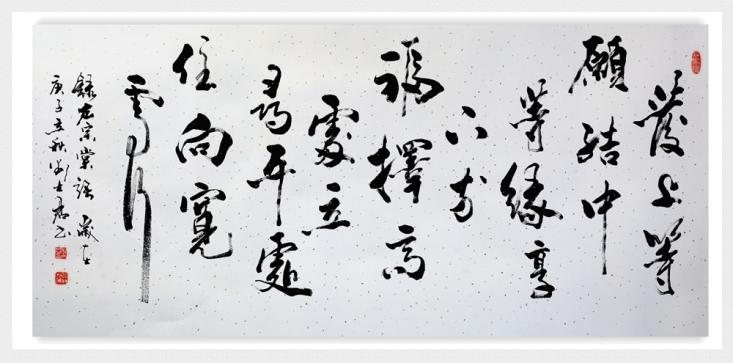 發上等
願結中
等緣享
下等
福擇高
處立
尋平處
住向寬
處行
錄左宗棠語 歲在
庚子立秋